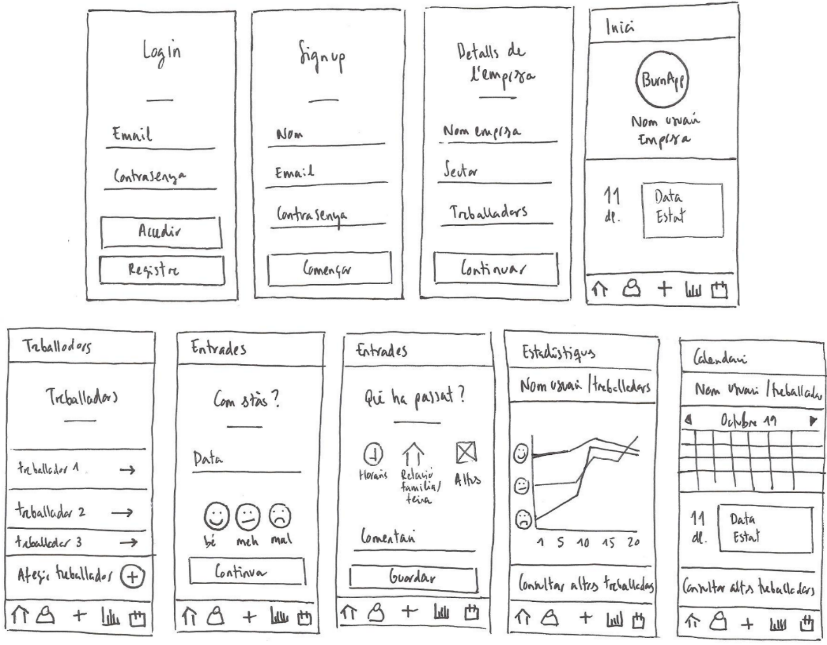 Login
Email
Contrasenya
Accedir
Registre
Signup
Nom
Email
Contrasenya
Començar
Detalls de
l'empresa
Nom empresa
Sector
Treballadors
Continuar
Inici
BurnApp
Nom usuari
Empresa
11
dl.
Data
Estat
Treballadors
Treballadors
treballador 1
treballador 2
treballador 3
Afegir treballador
Entrades
Com estàs?
Data
bé meh mal
Continua
Entrades
Què ha passat?
Horaris
Relació
família/
feina
Altres
Comentari
Guardar
Estadístiques
Nom usuari / treballadors
1 5 10 15 20
Consultar altres treballadors
Calendari
Nom usuari / treballador
Octubre 19
11
dl.
Data
Estat
Consultar altres treballadors